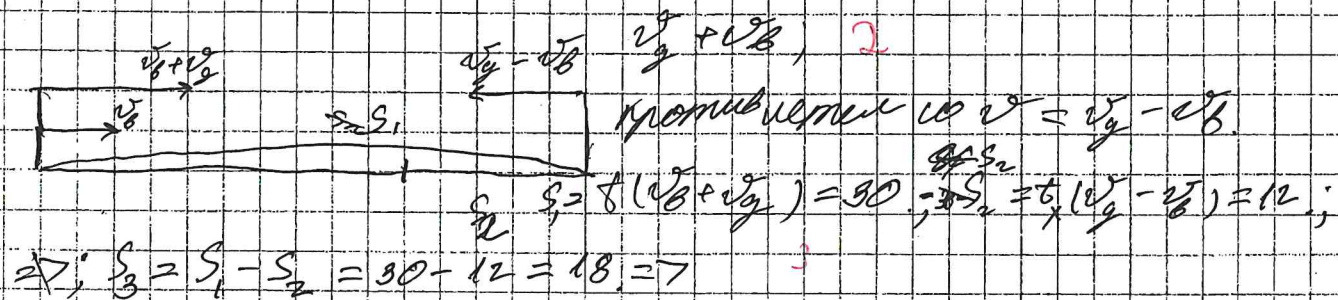 v_g + v_в ; 2
v_в + v_g
v_g − v_в
v_в
S₁
против летел со v = v_g − v_в.
S₂
S₁ = t(v_в + v_g) = 30 ; S₂ = t₁(v_g − v_в) = 12 ;
=> ; S₃ = S₁ − S₂ = 30 − 12 = 18 =>